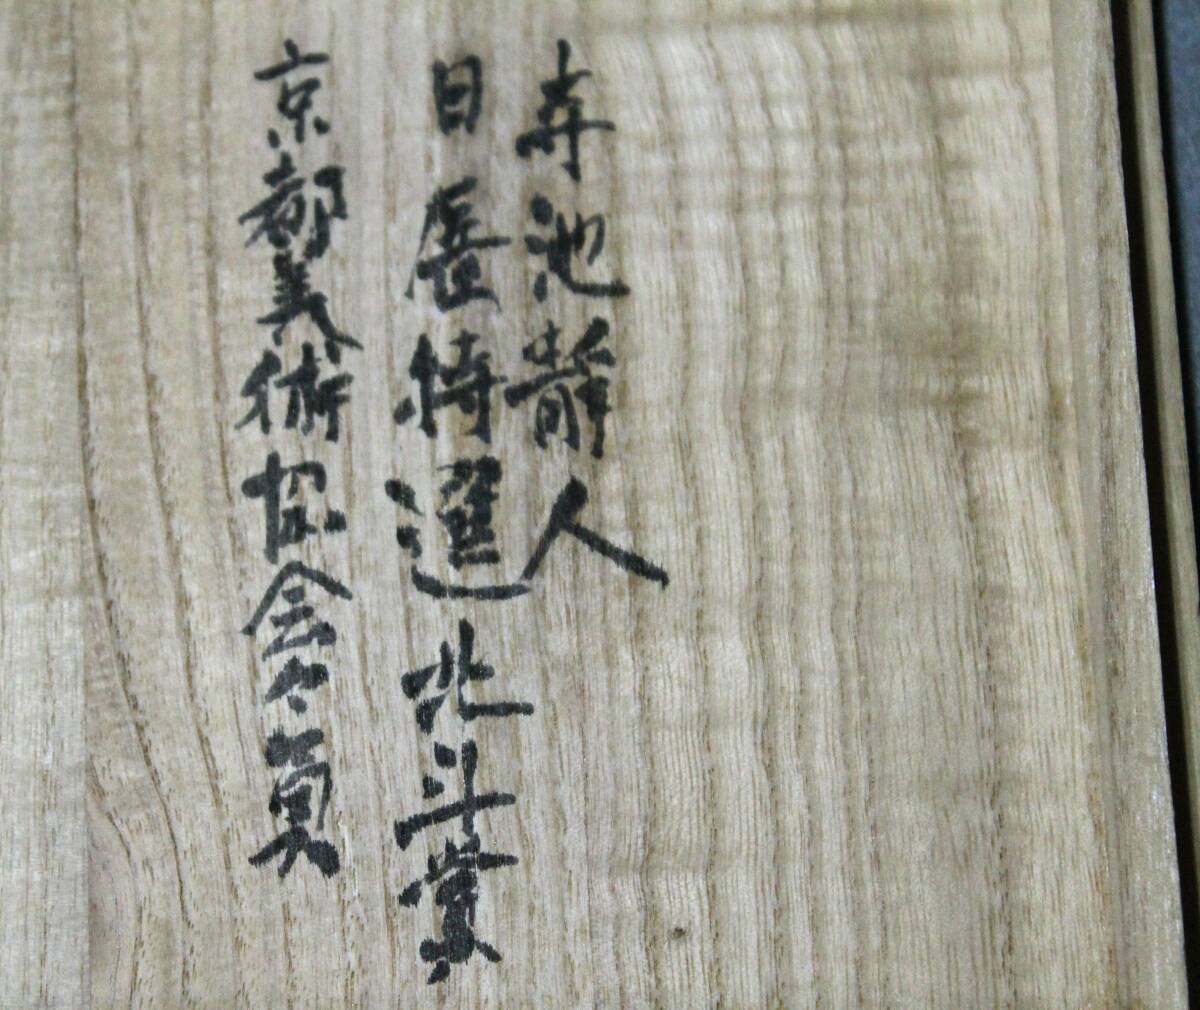 寺池静人
日展特選北斗賞
京都美術協会々員